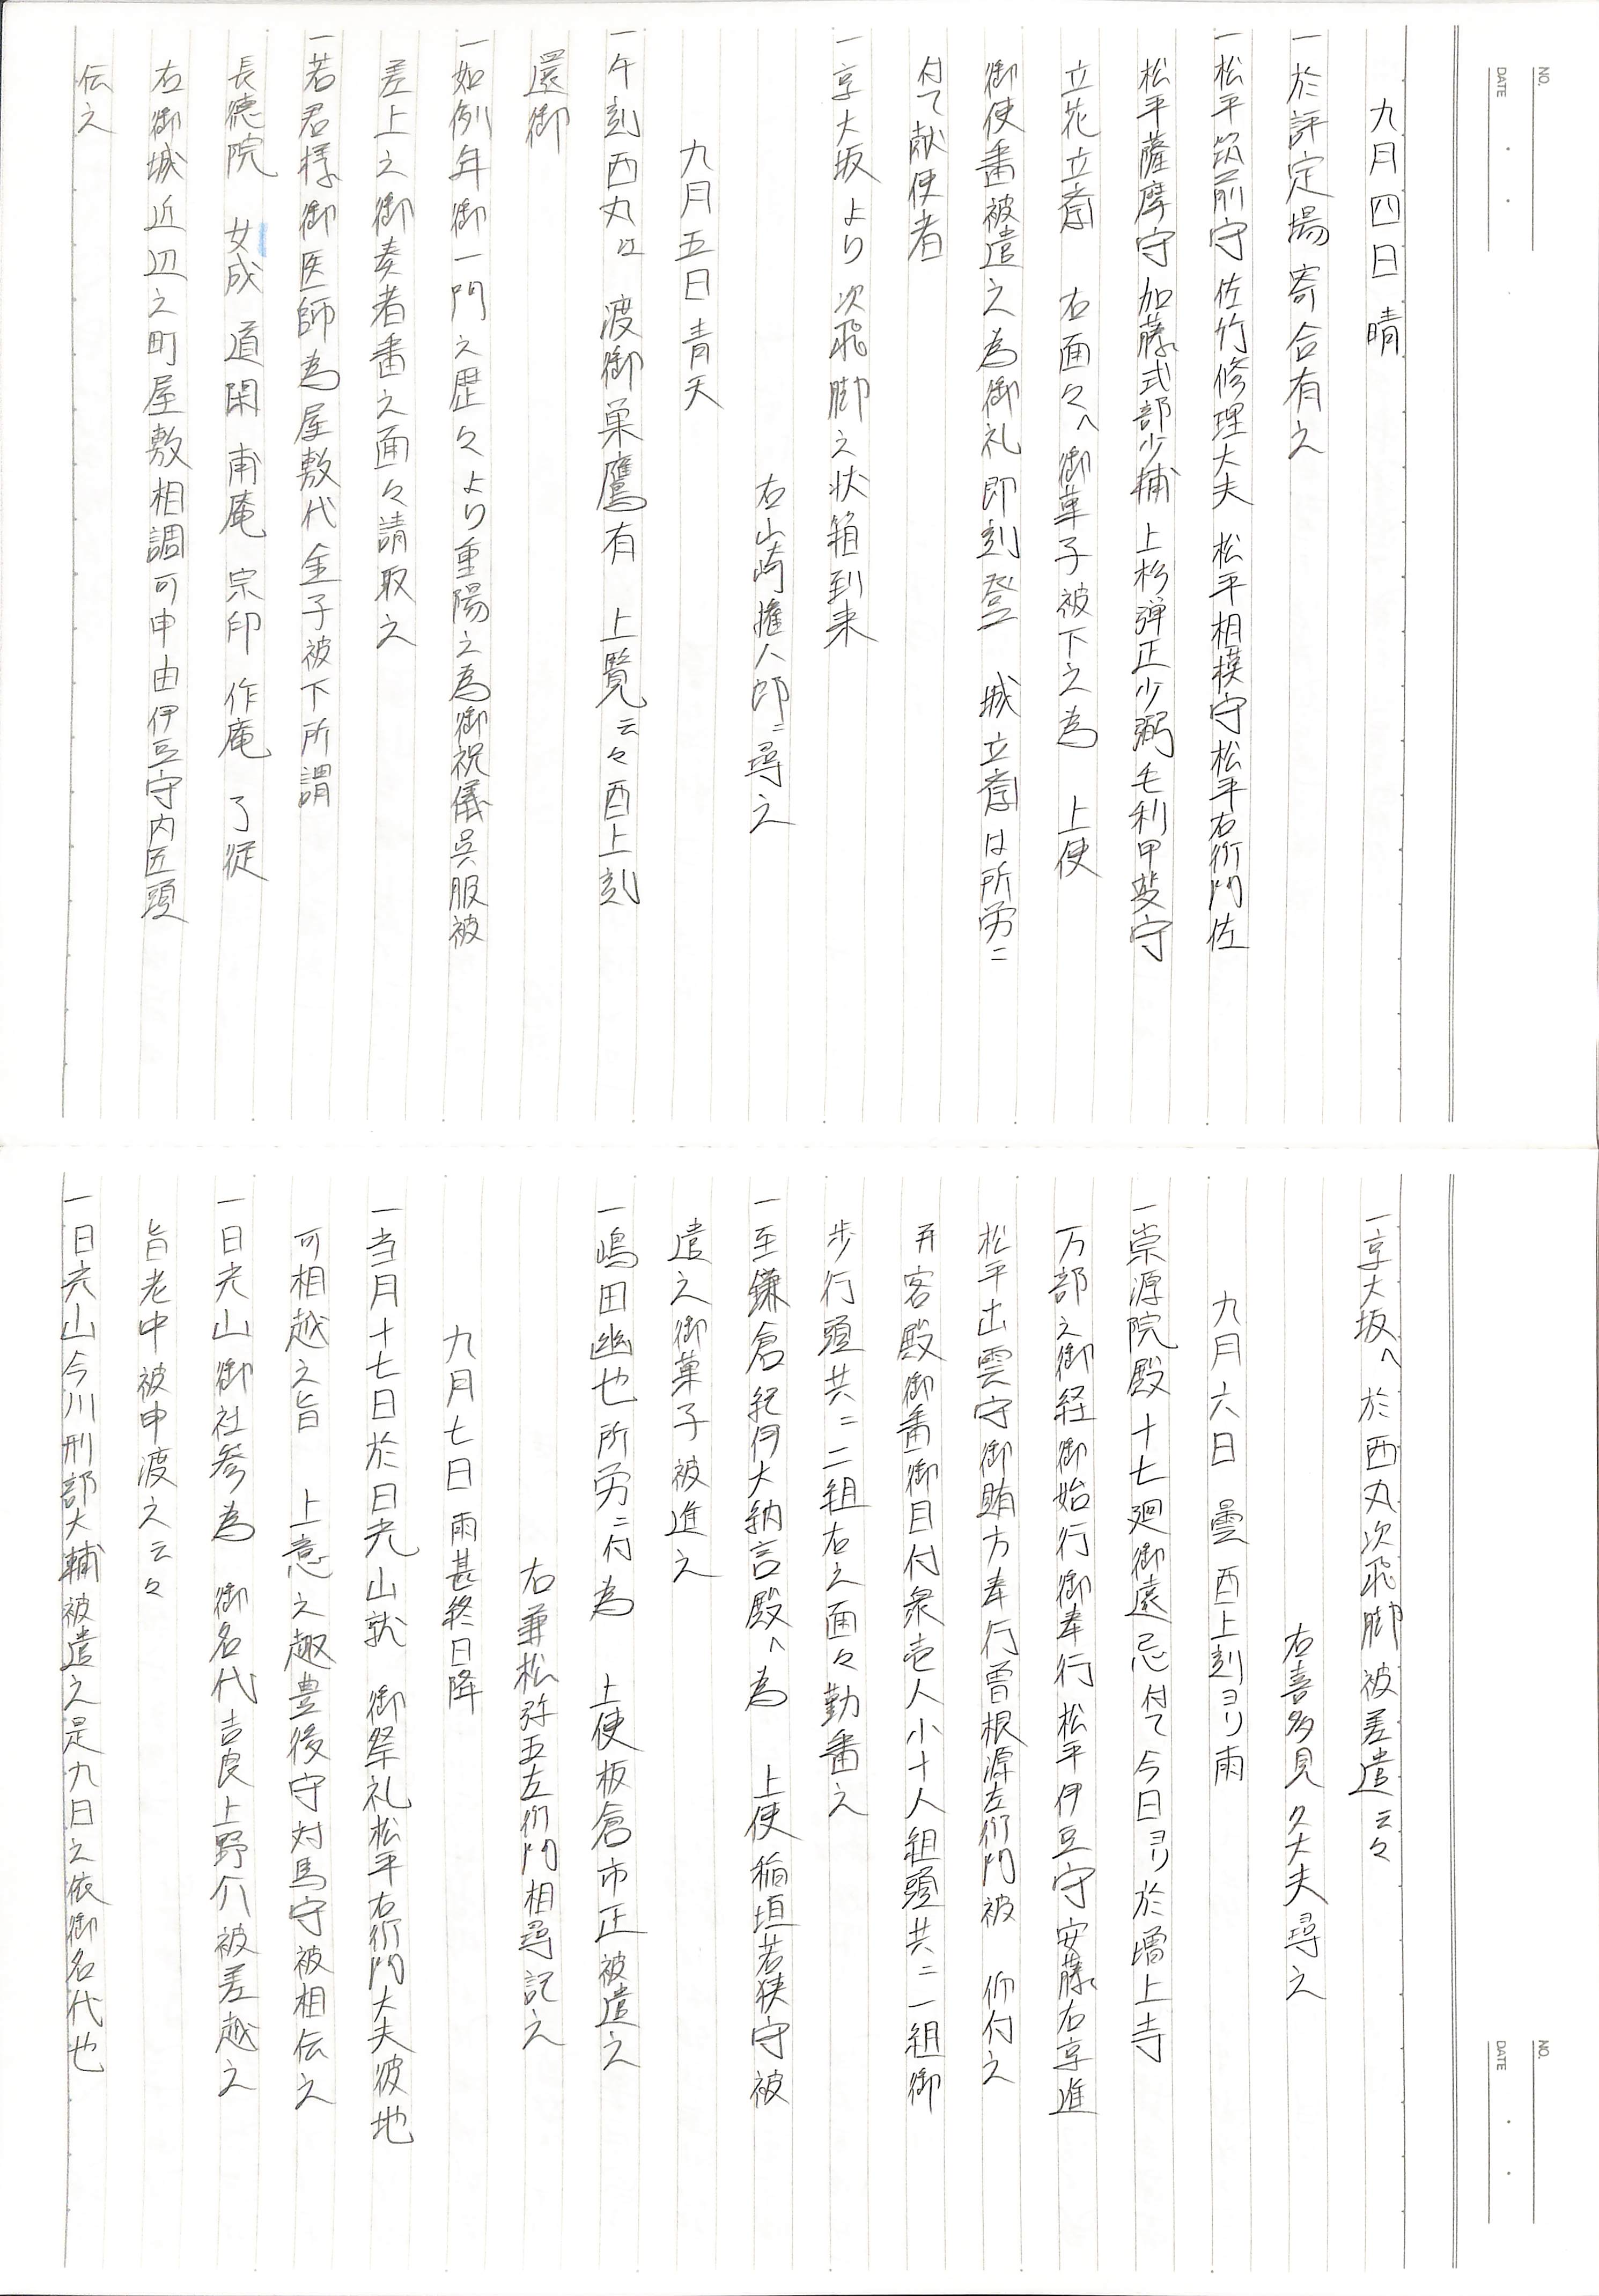 NO.
DATE
九月四日 晴
一於評定場寄合有之
一松平筑前守 佐竹修理大夫 松平相模守 松平右衛門佐
松平薩摩守 加藤式部少輔 上杉弾正少弼 毛利甲斐守
立花立斎 右面々へ御菓子被下之為 上使
御使番被遣之為御礼即刻登 城立斎は所労ニ
付て献使者
一京大坂より次飛脚之状箱到来
右山崎権八郎ニ尋之
九月五日 青天
一午刻西丸江 渡御巣鷹有 上覧云々酉上刻
還御
一如例年御一門之歴々より重陽之為御祝儀呉服被
差上之御奏者番之面々請取之
一若君様御医師為屋敷代金子被下所謂
長徳院 女成 道閑 甫庵 宗印 作庵 了従
右御城近辺之町屋敷相調可申由伊豆守内匠頭
伝之
NO.
DATE
一京大坂へ於西丸次飛脚被差遣云々
右喜多見久大夫尋之
九月六日 曇 酉上刻ヨリ雨
一崇源院殿十七廻御遠忌付て今日ヨリ於増上寺
万部之御経御始行御奉行松平伊豆守安藤右京進
松平出雲守御賄方奉行曽根源左衛門被 仰付之
并客殿御番御目付衆壱人小十人組頭共ニ一組御
歩行頭共ニ二組右之面々勤番之
一至鎌倉紀伊大納言殿へ為 上使稲垣若狭守被
遣之御菓子被進之
一嶋田幽也所労ニ付為 上使板倉市正被遣之
右兼松弥五左衛門相尋記之
九月七日 雨甚終日降
一当月十七日於日光山就 御祭礼松平右衛門大夫彼地
可相越之旨 上意之趣豊後守対馬守被相伝之
一日光山御社参為 御名代吉良上野介被差越之
旨老中被申渡之云々
一日光山今川刑部大輔被遣之是九日之依御名代也